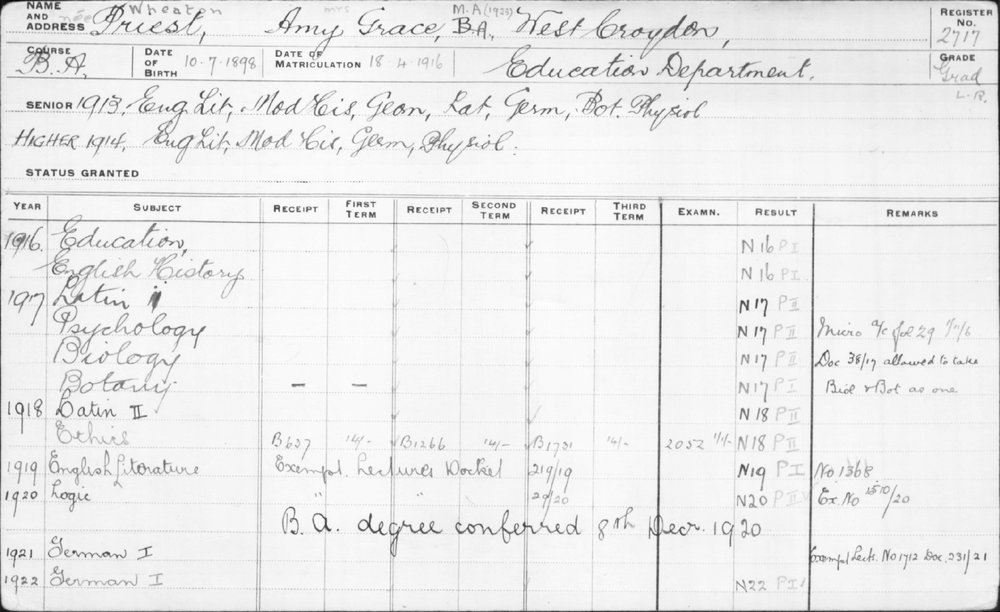 NAME AND ADDRESS née Wheaton Priest, mrs Amy Grace, M.A (1923) B.A, West Croydon, REGISTER No. 2717
COURSE B.A. DATE OF BIRTH 10.7.1898 DATE OF MATRICULATION 18.4.1916 Education Department. GRADE Grad
L.R.
SENIOR 1913. Eng Lit, Mod His, Geom, Lat, Germ, Bot. Physiol
HIGHER 1914. Eng Lit, Mod His, Germ, Physiol.
STATUS GRANTED
YEAR SUBJECT RECEIPT FIRST TERM RECEIPT SECOND TERM RECEIPT THIRD TERM EXAMN. RESULT REMARKS
1916. Education, N 16 P I
English History N 16 P I
1917 Latin N 17 P II
Psychology N 17 P II Micro
Biology N 17 P II Doc 38/17 allowed to take
Botany — — N 17 P I Biol & Bot as one
1918 Latin II N 18 P II
Ethics B637 14/- B1266 14/- B1731 14/- 2052 N 18 P II
1919 English Literature Exempt. Lectures Docket 219/19 N 19 P I No 1368
1920 Logic " " 29/20 N20 P II Ex. No 1510/20
B.A. degree conferred 8th Decr. 1920
1921 German I Exempt Lects. No 1712 Doc. 231/21
1922 German I N22 P I